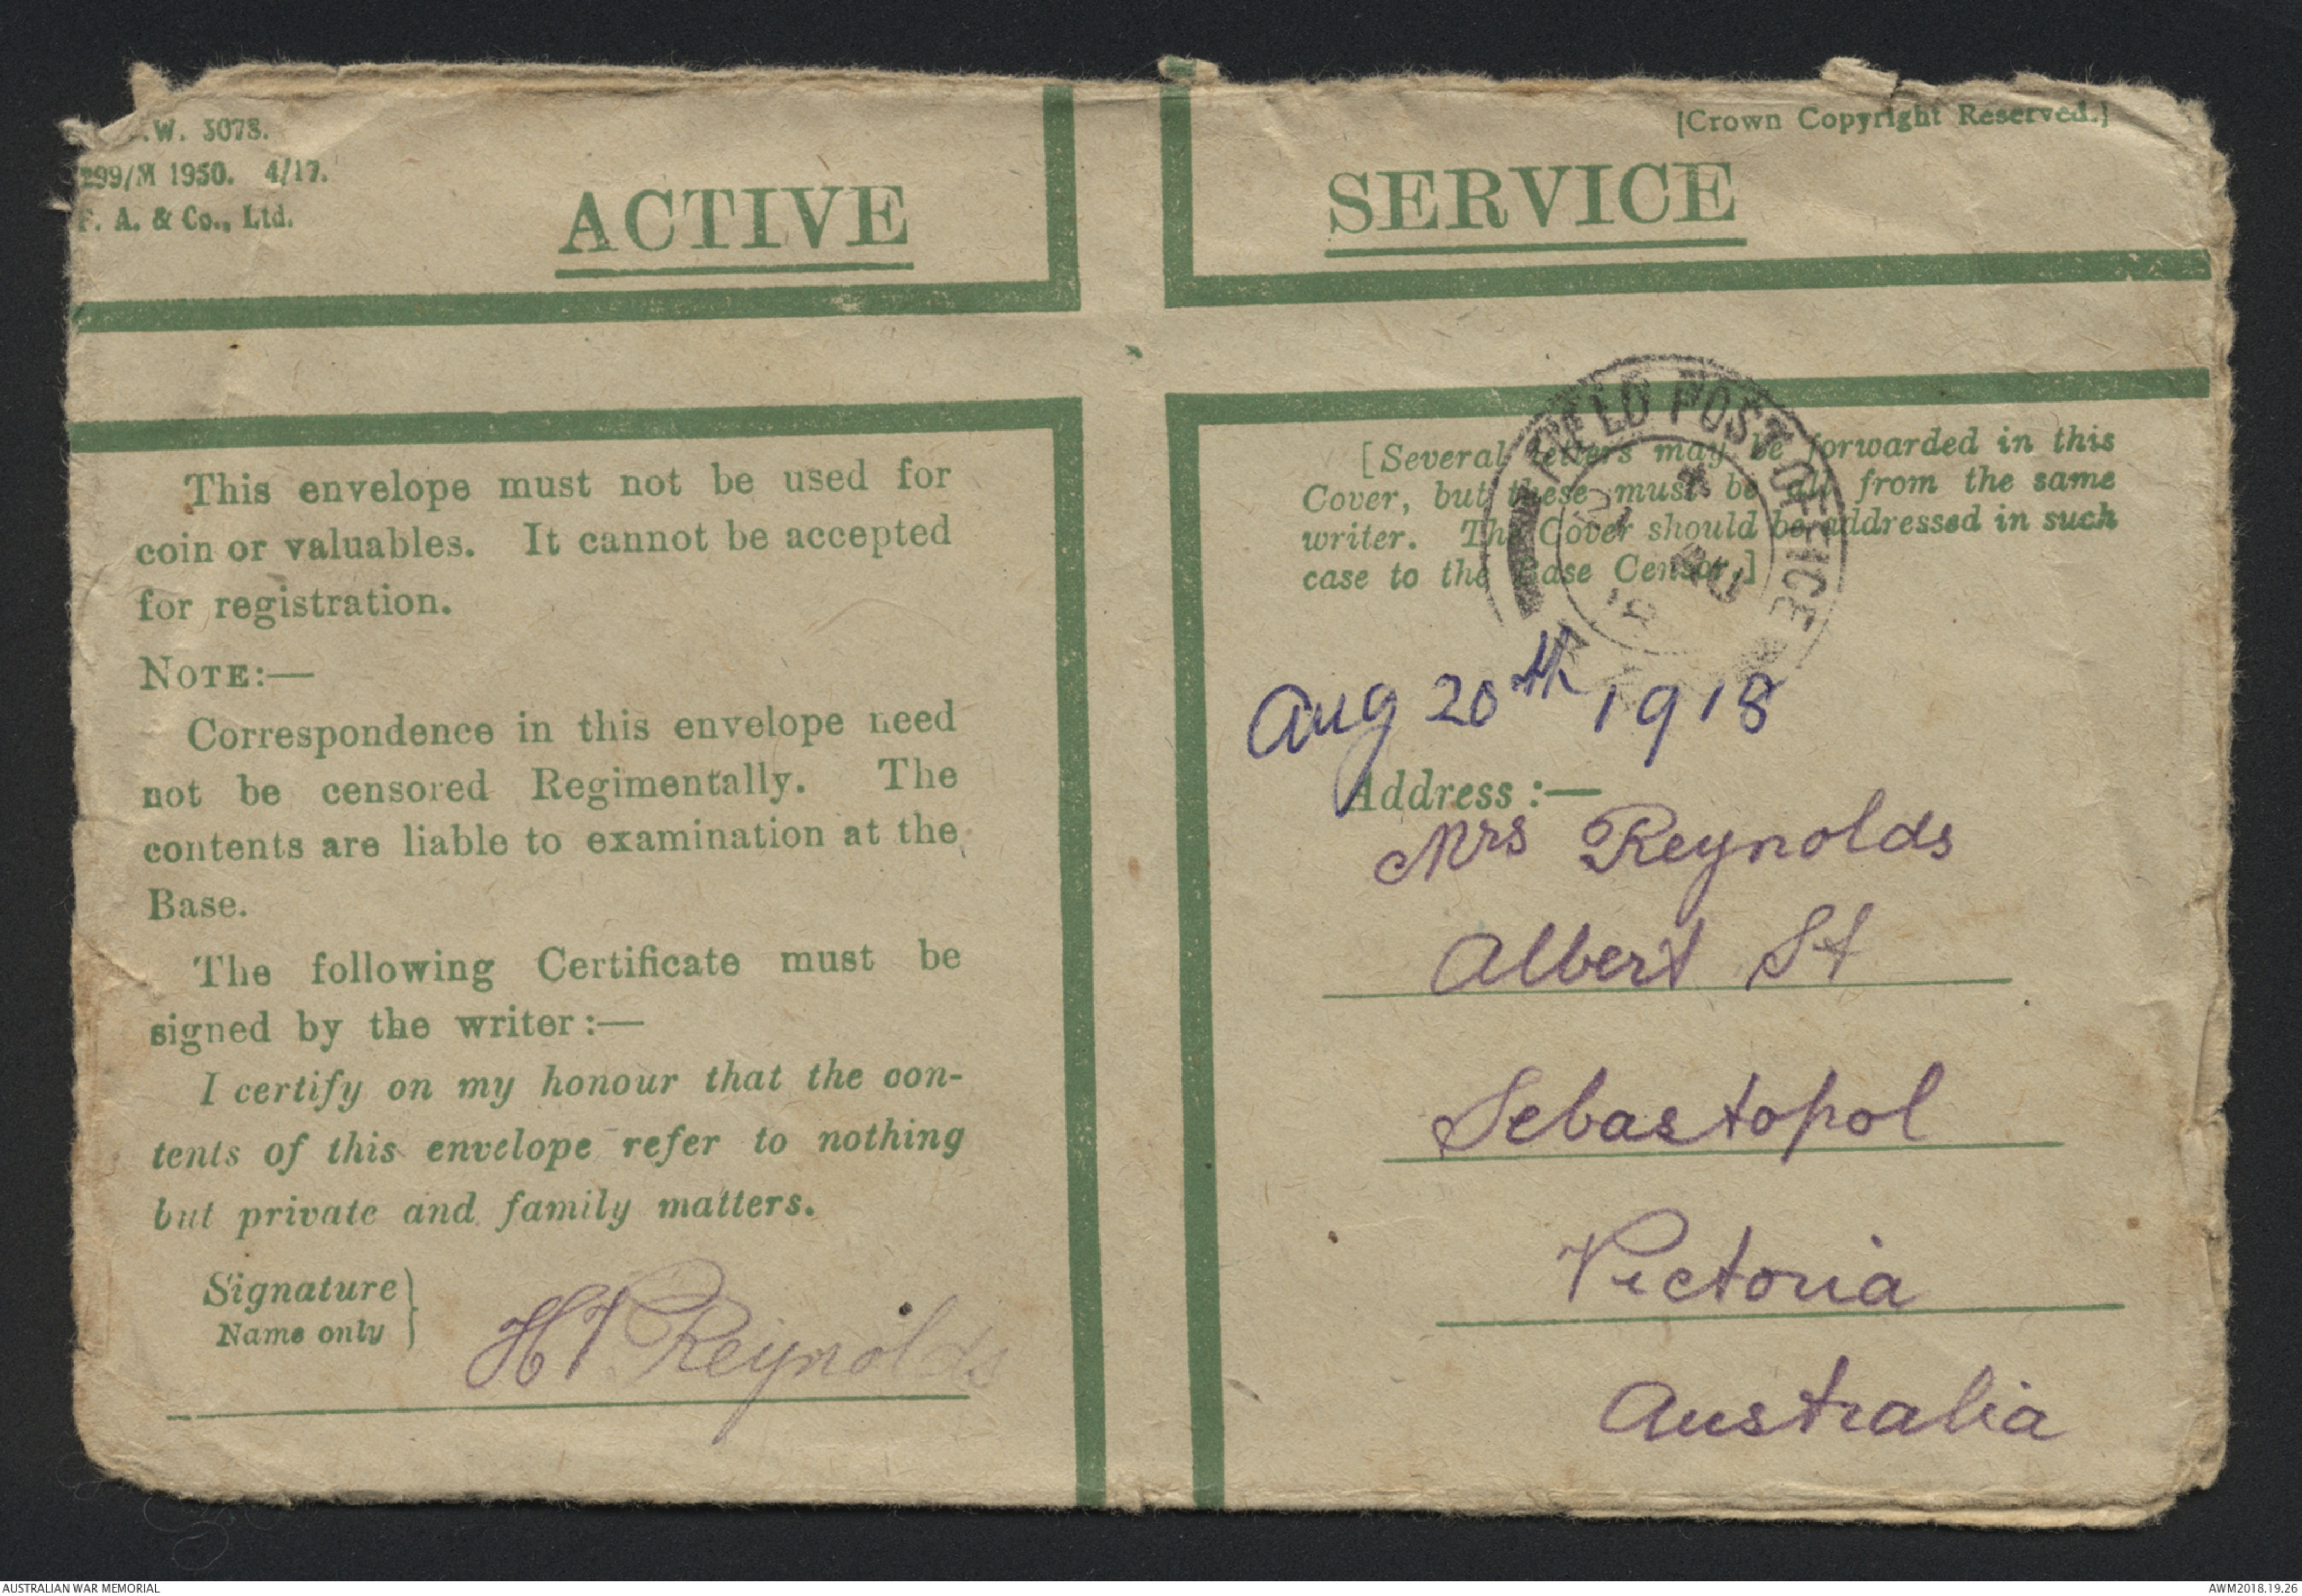 .W. 3078.
299/M 1950. 4/17.
F. A. & Co., Ltd.
[Crown Copyright Reserved.]
ACTIVE SERVICE
This envelope must not be used for
coin or valuables. It cannot be accepted
for registration.
NOTE:—
Correspondence in this envelope need
not be censored Regimentally. The
contents are liable to examination at the
Base.
The following Certificate must be
signed by the writer:—
I certify on my honour that the con-
tents of this envelope refer to nothing
but private and family matters.
Signature
Name only
HT Reynolds
[Several letters may be forwarded in this
Cover, but these must be all from the same
writer. The Cover should be addressed in such
case to the Base Censor.]
FIELD POST OFFICE
Aug 20th 1918
Address:—
Mrs Reynolds
Albert St
Sebastopol
Victoria
Australia
AUSTRALIAN WAR MEMORIAL
AWM2018.19.26